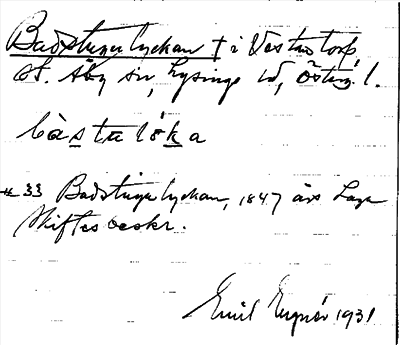 Badstugulyckan † i Västratorp,
St. Åby sn, Lysings hd, Östrg. l.
bàstulóka
# 33 Badstugulyckan, 1847 års Laga
Skiftes beskr.
Emil 1931